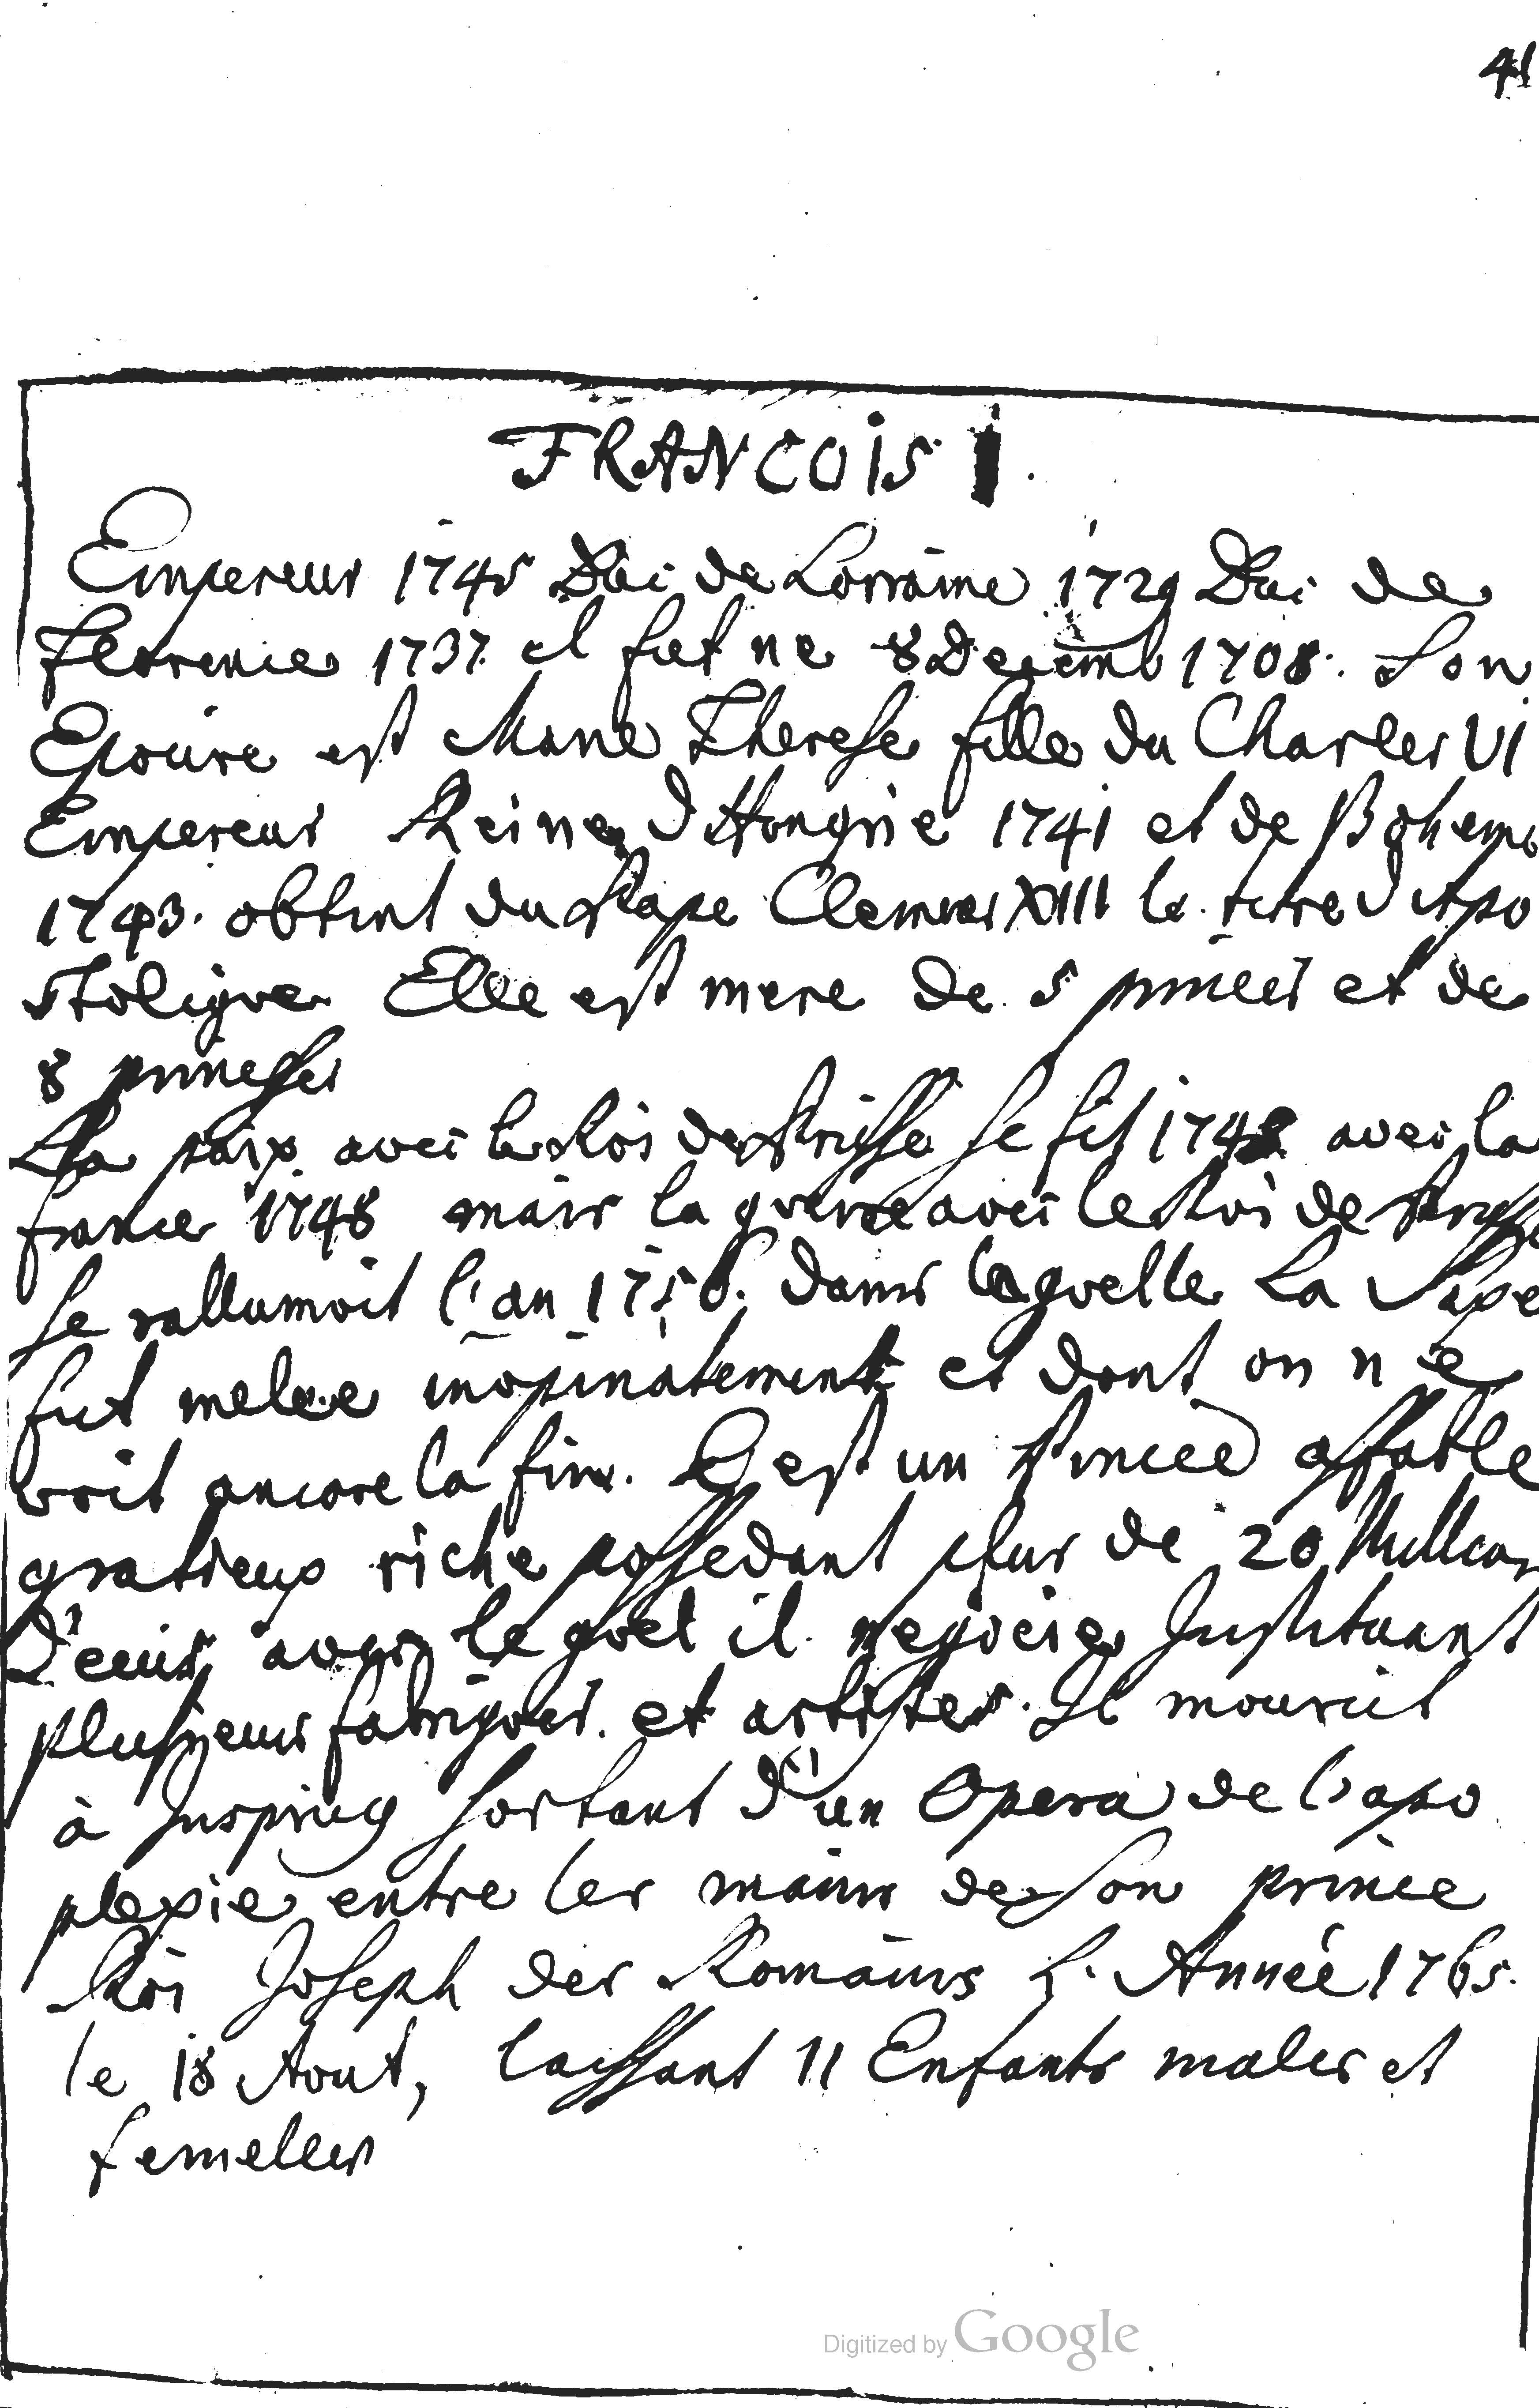 41
FRANCOIS I.
Empereur 1745 Duc de Lorraine 1729 Duc de
Florence 1737. il fut ne 8 Decemb 1708. Son
Epouse est Marie Therese fille du Charles VI
Empereur Reine d'Hongrie 1741 et de Boheme
1743. obtint du Pape Clemens XIII le titre d'Apo
stolique Elle est mere de 5 princes et de
8 princesses
La paix avec le Roi de Prusse se fit 1742 avec la
france 1748 mais la guerre avec le Roi de Prusse
se rallumoit l'an 1756. dans laquelle La
fut melee inopinatement et dont on n e
voit ancore la fin. C est un Prince affable
gratieux riche possedant plus de 20 Million
d'ecus avec le quel il negocie Instituant
plusieurs fabriques. et artistes. Il mourut
à Insprug sortant d'un Opera de l'apo
plexie entre les mains de son prince
Roi Joseph des Romains l'Année 1765.
le 18 Aout, laissant 11 Enfants males et
femelles
Digitized by Google